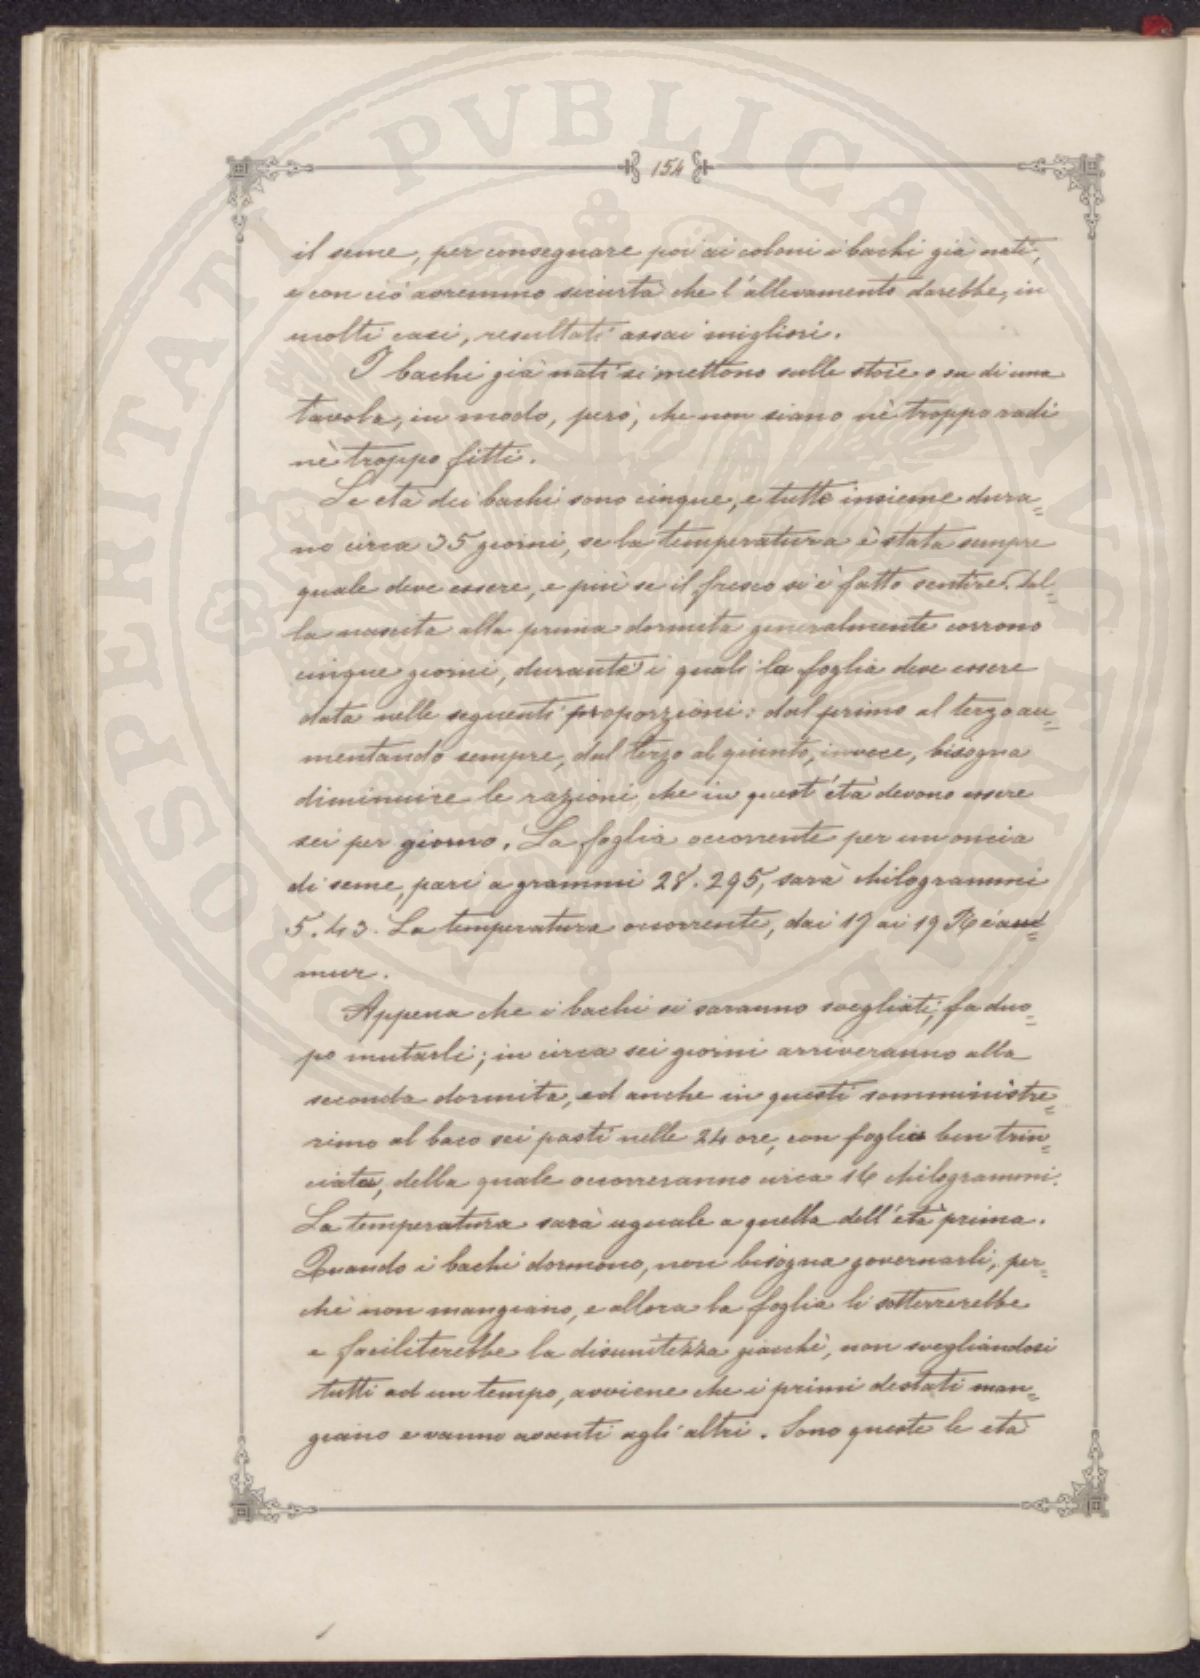 154
il seme, per consegnare poi ai coloni i bachi già nati,
e con ciò avremmo sicurtà che l'allevamento darebbe, in
molti casi, resultati assai migliori.
I bachi già nati si mettono sulle stoie o su di una
tavola, in modo, però, che non siano nè troppo radi
nè troppo fitti.
Le età dei bachi sono cinque, e tutte insieme dura=
no circa 35 giorni, se la temperatura è stata sempre
quale deve essere, e più se il fresco si è fatto sentire. Dal=
la nascita alla prima dormita generalmente corrono
cinque giorni, durante i quali la foglia deve essere
data nelle seguenti proporzioni: dal primo al terzo au=
mentando sempre, dal terzo al quinto, invece, bisogna
diminuire le razioni che in quest'età devono essere
sei per giorno. La foglia occorrente per un oncia
di seme, pari a grammi 28.295, sarà chilogrammi
5.43. La temperatura occorrente, dai 17 ai 19 Réau=
mur.
Appena che i bachi si saranno svegliati, fa duo=
po mutarli; in circa sei giorni arriveranno alla
seconda dormita, ed anche in questi somministre=
rimo al baco sei pasti nelle 24 ore, con foglia ben trin=
ciata, della quale occorreranno circa 16 chilogrammi.
La temperatura sarà uguale a quella dell'età prima.
Quando i bachi dormono, non bisogna governarli, per=
chè non mangiano, e allora la foglia li sotterrerebbe
e faciliterebbe la disunitezza giacchè, non svegliandosi
tutti ad un tempo, avviene che i primi destati man=
giano e vanno avanti agli altri. Sono queste le età
PROSPERITATI PVBLICAE AVGENDAE